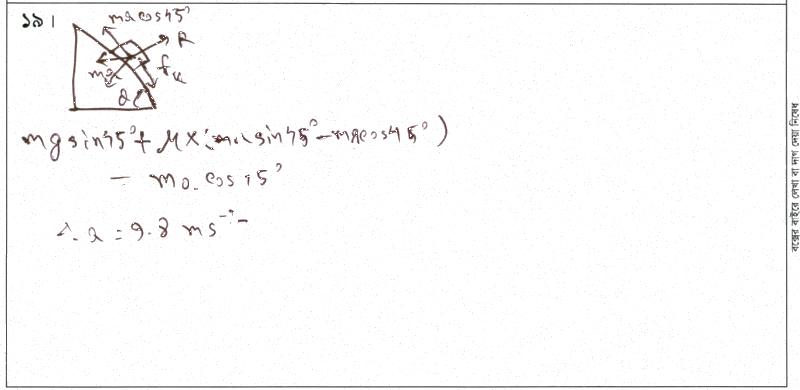 ১৯।
macos45°
R
ma
fk
mgsin45° + μ×(masin45° - macos45°)
= ma cos 45°
∴ a = 9.8 ms⁻²
বক্সের বাইরে লেখা বা দাগ দেয়া নিষেধ